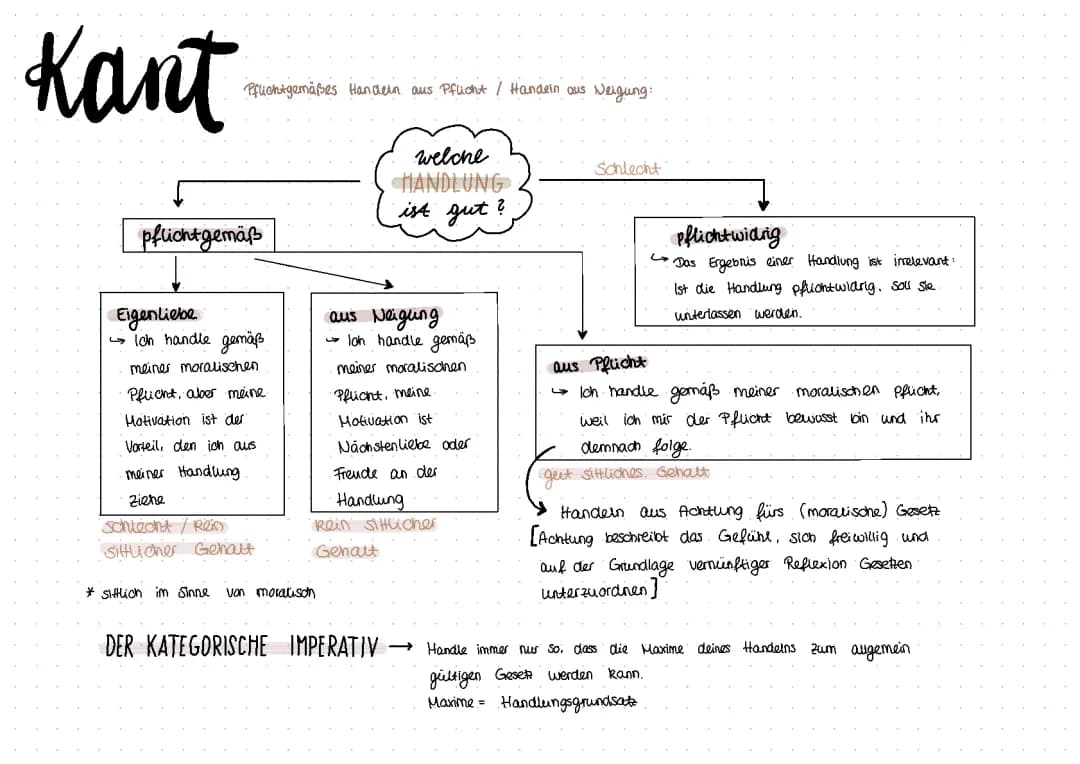 Kant
Pflichtgemäßes Handeln aus Pflicht / Handeln aus Neigung:
welche
HANDLUNG
ist gut?
Schlecht
pflichtgemäß
pflichtwidrig
↳ Das Ergebnis einer Handlung ist irrelevant:
Ist die Handlung pflichtwidrig, soll sie
unterlassen werden.
Eigenliebe
↳ Ich handle gemäß
meiner moralischen
Pflicht, aber meine
Motivation ist der
Vorteil, den ich aus
meiner Handlung
ziehe
schlecht / Kein
sittlicher Gehalt
aus Neigung
↳ Ich handle gemäß
meiner moralischen
Pflicht, meine
Motivation ist
Nächstenliebe oder
Freude an der
Handlung
Kein sittlicher
Gehalt
aus Pflicht
↳ Ich handle gemäß meiner moralischen Pflicht,
weil ich mir der Pflicht bewusst bin und ihr
demnach folge.
gut sittliches. Gehalt
Handeln aus Achtung fürs (moralische) Gesetz
[Achtung beschreibt das Gefühl, sich freiwillig und
auf der Grundlage vernünftiger Reflexion Gesetzen
unterzuordnen]
* sittlich im Sinne von moralisch
DER KATEGORISCHE IMPERATIV → Handle immer nur so, dass die Maxime deines Handelns zum allgemein
gültigen Gesetz werden kann.
Maxime = Handlungsgrundsatz